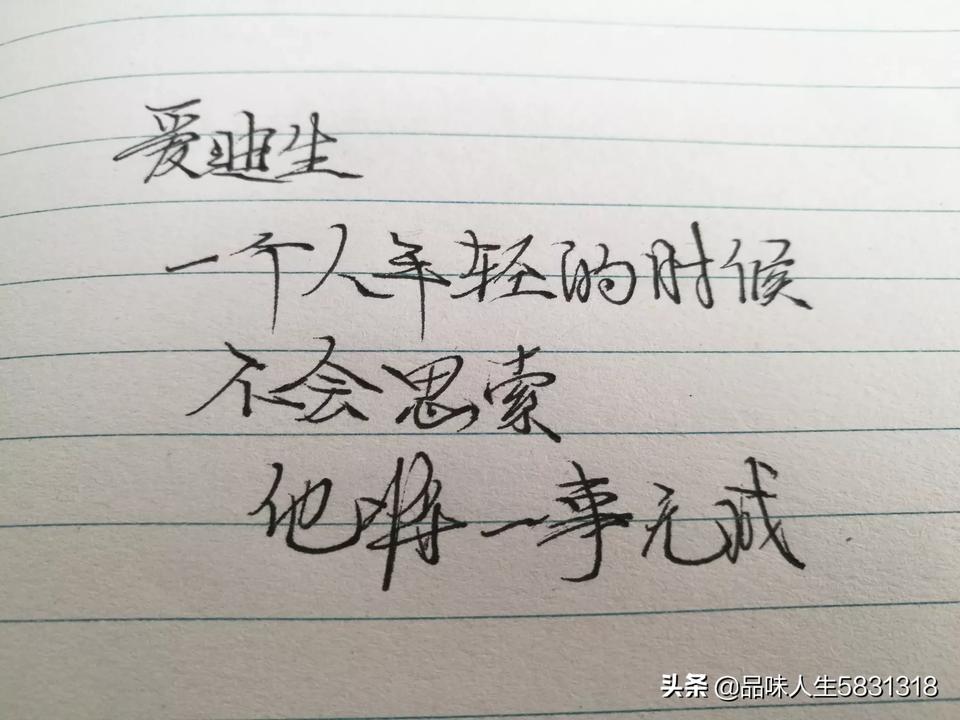 爱迪生
一个人年轻的时候
不会思索
他将一事无成
头条 @品味人生5831318